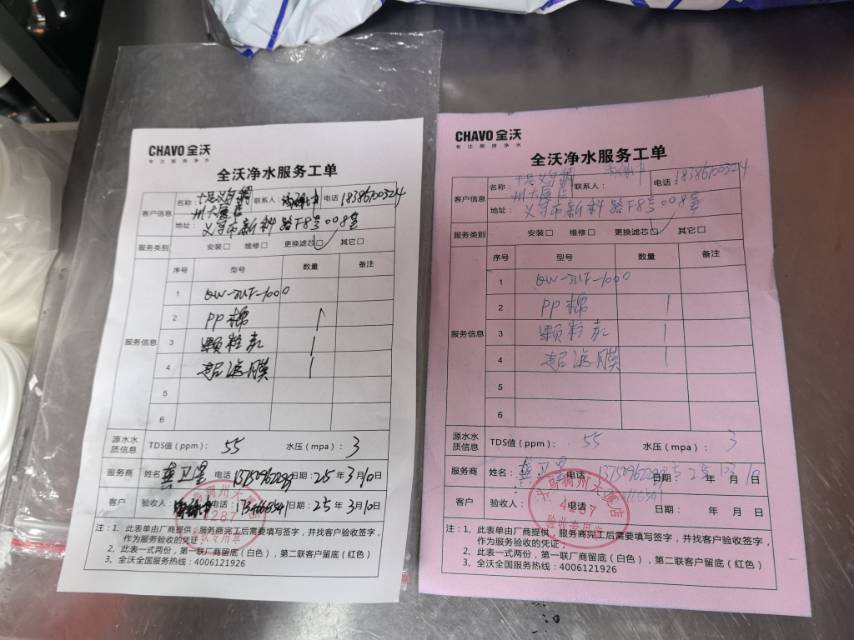 CHAVO 全沃
专注商用净水
全沃净水服务工单
客户信息
名称：
联系人
电话 18386100324
州大厦店
地址： 义乌市新科路F8号008室
服务类别 安装□ 维修□ 更换滤芯☑ 其它□
服务信息
序号 型号 数量 备注
1
2 PP棉 1
3 颗粒炭 1
4 超滤膜 1
5
6
源水水质信息 TDS值（ppm）： 55 水压（mpa）： 3
服务商 姓名 龚卫星 电话 日期：25年3月10日
客户 验收人： 电话 日期：25年3月10日
注：1、此表单由厂商提供，服务商完工后需要填写签字，并找客户验收签字，
作为服务验收的凭证。
2、此表一式两份，第一联厂商留底（白色），第二联客户留底（红色）
3、全沃全国服务热线：4006121926
CHAVO 全沃
专注商用净水
全沃净水服务工单
客户信息
名称：
联系人：
电话 18386100324
州大厦店
地址： 义乌市新科路F8号008室
服务类别 安装□ 维修□ 更换滤芯☑ 其它□
服务信息
序号 型号 数量 备注
1
2 PP棉 1
3 颗粒炭 1
4 超滤膜 1
5
6
源水水质信息 TDS值（ppm）： 55 水压（mpa）： 3
服务商 姓名： 龚卫星 电话 25 3 10 年 月 日
客户 验收人： 电话： 日期： 年 月 日
4287
验收专用章
注：1、此表单由厂商提供，服务商完工后需要填写签字，并找客户验收签字，
作为服务验收的凭证。
2、此表一式两份，第一联厂商留底（白色），第二联客户留底（红色）
3、全沃全国服务热线：4006121926